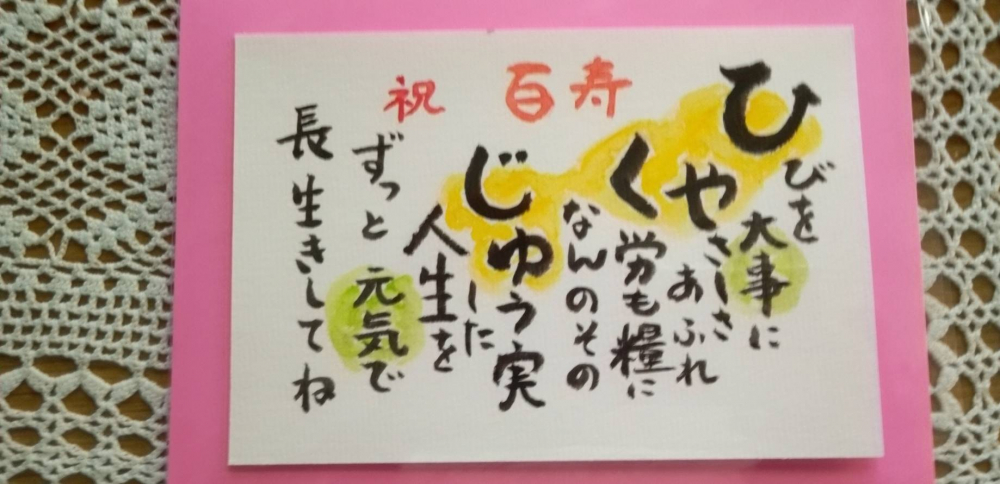 祝 百寿
ひびを大事に
やさしさあふれ
く労も糧に
なんのその
じゅう実した
人生を
ずっと元気で
長生きしてね